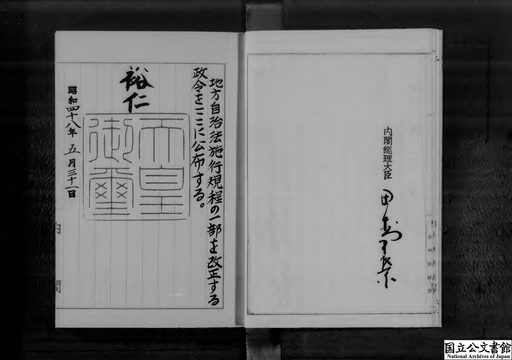 地方自治法施行規程の一部を改正する
政令をここに公布する。
裕仁
天皇
御璽
昭和四十八年五月三十一日
内閣総理大臣
田中角榮
国立公文書館
National Archives of Japan